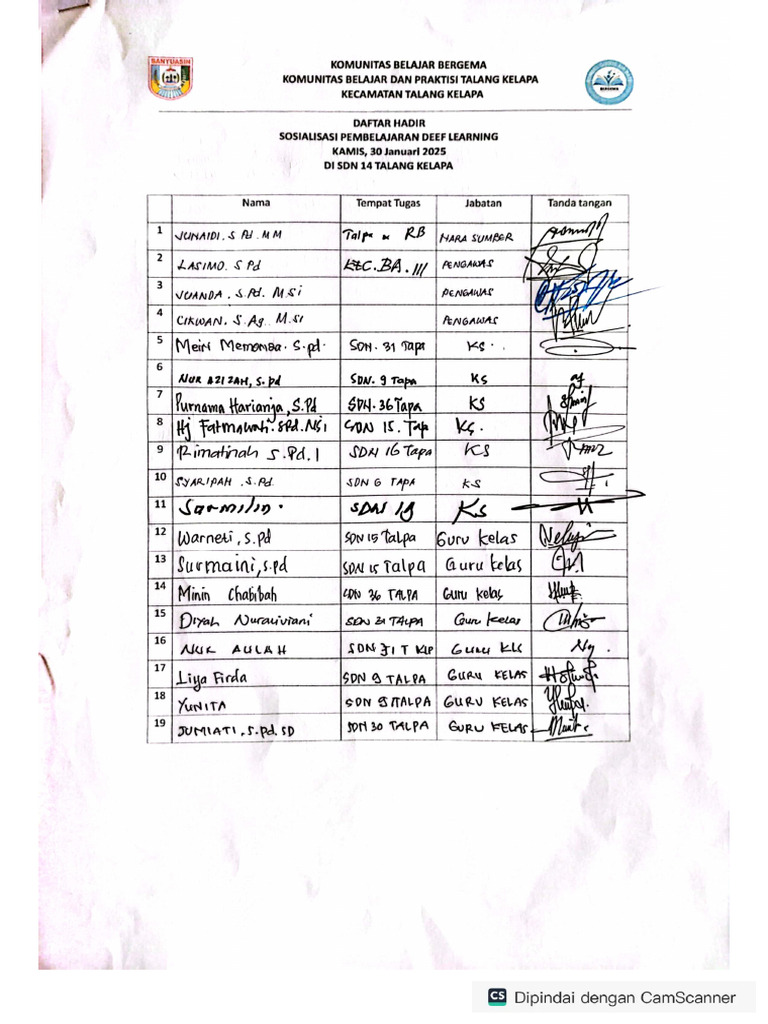 BANYUASIN
KOMUNITAS BELAJAR BERGEMA
KOMUNITAS BELAJAR DAN PRAKTISI TALANG KELAPA
KECAMATAN TALANG KELAPA
BERGEMA
DAFTAR HADIR
SOSIALISASI PEMBELAJARAN DEEF LEARNING
KAMIS, 30 Januari 2025
DI SDN 14 TALANG KELAPA
Nama Tempat Tugas Jabatan Tanda tangan
1 JUNAIDI. S Pd. MM Talpa RB NARA SUMBER
2 LASIMO. S Pd KEC. BA. III PENGAWAS
3 JUANDA. S.Pd. M.Si PENGAWAS
4 CIKWAN. S.Ag. M.Si PENGAWAS
5 Meiri S.pd. SDN. 31 Tapa KS.
6 NUR AZIZAH, S.pd SDN. 9 Tapa KS
7 Purnama Harianja, S.Pd SDN. 36 Tapa KS
8 Hj Fatmawati. SPd. MSi SDN 15. Tap KS.
9 Rimatinah S.Pd. I SDN 16 Tapa KS
10 SYARIPAH. S.Pd. SDN 6 TAPA KS
11 Sarmilin. SDN KS
12 Warneti, S.pd SDN 15 Talpa Guru kelas
13 Surmaini, S.pd SDN 15 Talpa Guru kelas
14 Minin Chabibah SDN 36 TALPA Guru kelas
15 Diyah SDN 21 TALPA Guru kelas
16 NUR AULAH SDN T KLP GURU KLS
17 Liya Firda SDN 9 TALPA GURU KELAS
18 YUNITA SDN 9 TALPA GURU KELAS
19 JUMIATI, S.Pd.SD SDN 30 TALPA GURU KELAS
CS Dipindai dengan CamScanner